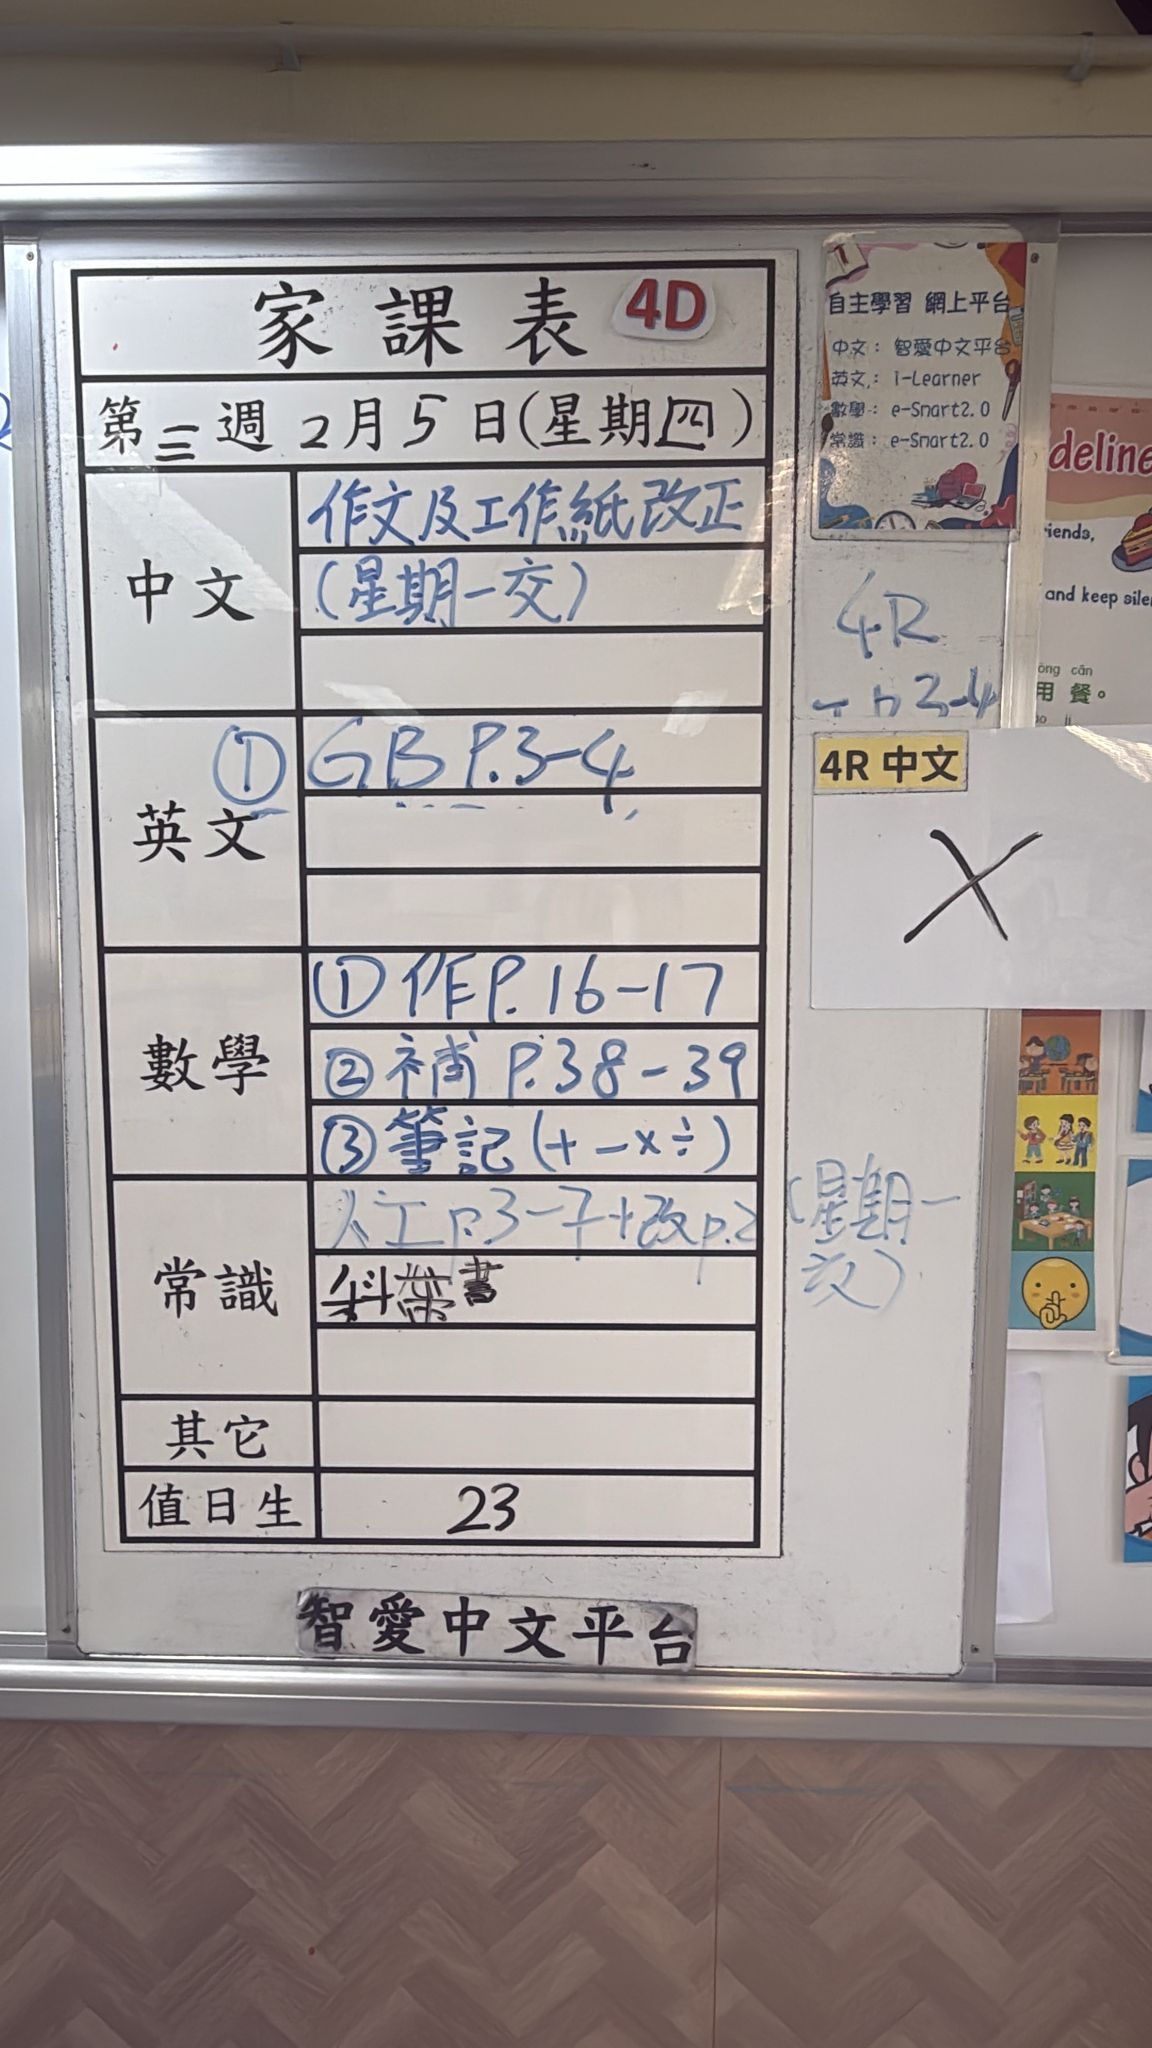 家課表 4D
第三週 2月5日(星期四)
中文
作文及工作紙改正
(星期一交)
英文
① GB P.3-4
數學
① 作 P.16-17
② 補 P.38-39
③ 筆記 (+-×÷)
常識
人工 p.3-7+改p.2 (星期一
交)
書
其它
值日生 23
智愛中文平台
自主學習 網上平台
中文: 智愛中文平台
英文: i-Learner
數學: e-Smart2.0
常識: e-Smart2.0
4R
3-4
4R 中文
deline
iends,
and keep sile
ōng cān
用餐。